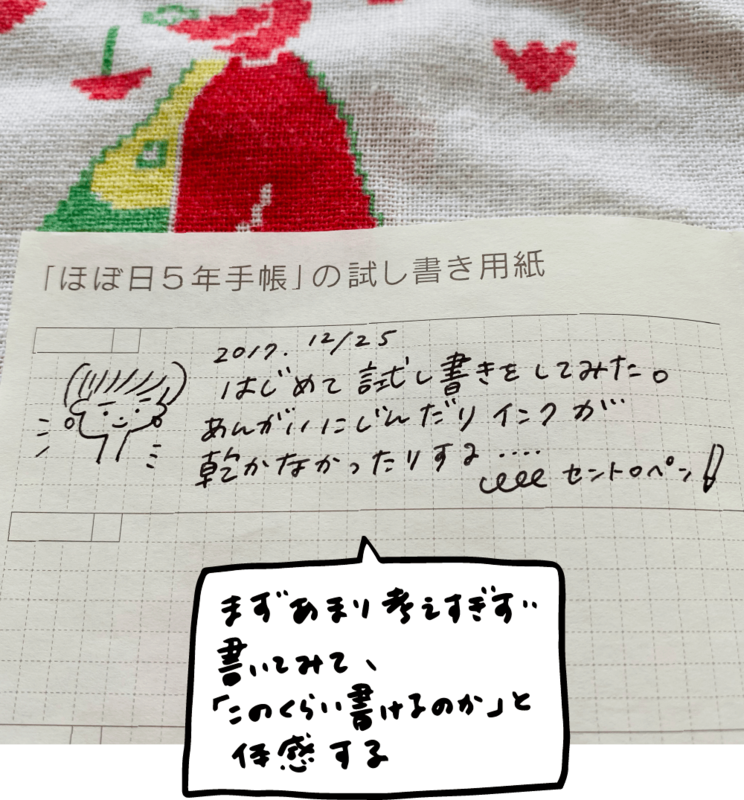 「ほぼ日5年手帳」の試し書き用紙
2017. 12/25
はじめて試し書きをしてみた。
あんがいにじんだりインクが
乾かなかったりする....
セントロペン
まずあまり考えすぎず
書いてみて、
「このくらい書けるのか」と
体感する